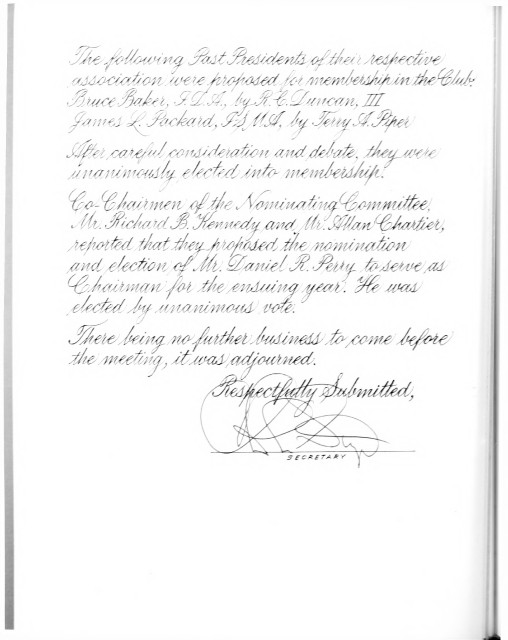 The following Past Presidents of their respective
association were proposed for membership in the Club:
Bruce Baker, F.D.A., by R.C. Duncan, III
James L. Packard, F.S.M.A. by Terry A. Piper
After careful consideration and debate, they were
unanimously elected into membership.
Co-Chairmen of the Nominating Committee,
Mr. Richard B. Kennedy and Mr. Allan Chartier,
reported that they proposed the nomination
and election of Mr. Daniel R. Perry to serve as
Chairman for the ensuing year. He was
elected by unanimous vote.
There being no further business to come before
the meeting, it was adjourned.
Respectfully Submitted,
SECRETARY